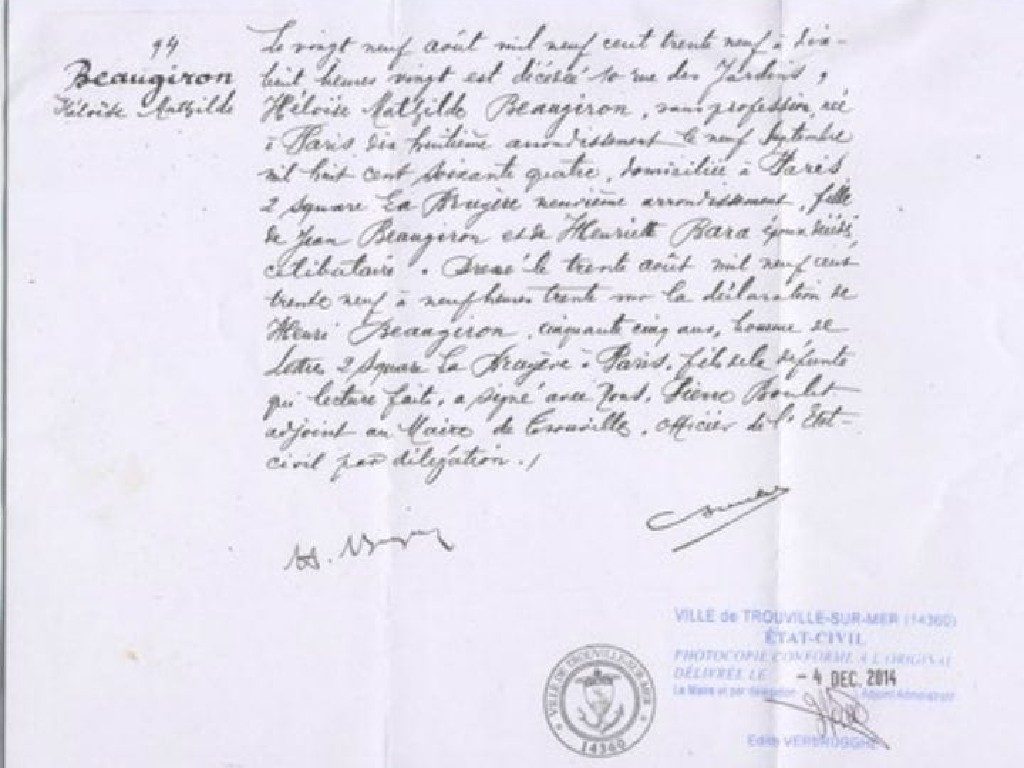 94
Beaugiron
Héloïse Mathilde
Le vingt neuf août mil neuf cent trente neuf à dix-
huit heures vingt est décédée 10 rue des Jardins,
Héloïse Mathilde Beaugiron, sans profession, née
à Paris dix huitième arrondissement le neuf septembre
mil huit cent soixante quatre, domiciliée à Paris,
2 square La Bruyère neuvième arrondissement, fille
de Jean Beaugiron et de Henriette Bara époux décédés,
célibataire. Dressé le trente août mil neuf cent
trente neuf à neuf heures trente sur la déclaration de
Henri Beaugiron, cinquante cinq ans, homme de
lettre 2 square La Bruyère à Paris, fils de la défunte
qui lecture faite, a signé avec Nous, Pierre
adjoint au Maire de Trouville, officier de l'Etat-
civil par délégation./
VILLE de TROUVILLE-SUR-MER (14360)
ÉTAT-CIVIL
PHOTOCOPIE CONFORME A L'ORIGINAL
DÉLIVRÉE LE - 4 DEC. 2014
Le Maire et par délégation
VILLE DE TROUVILLE-SUR-MER
14360